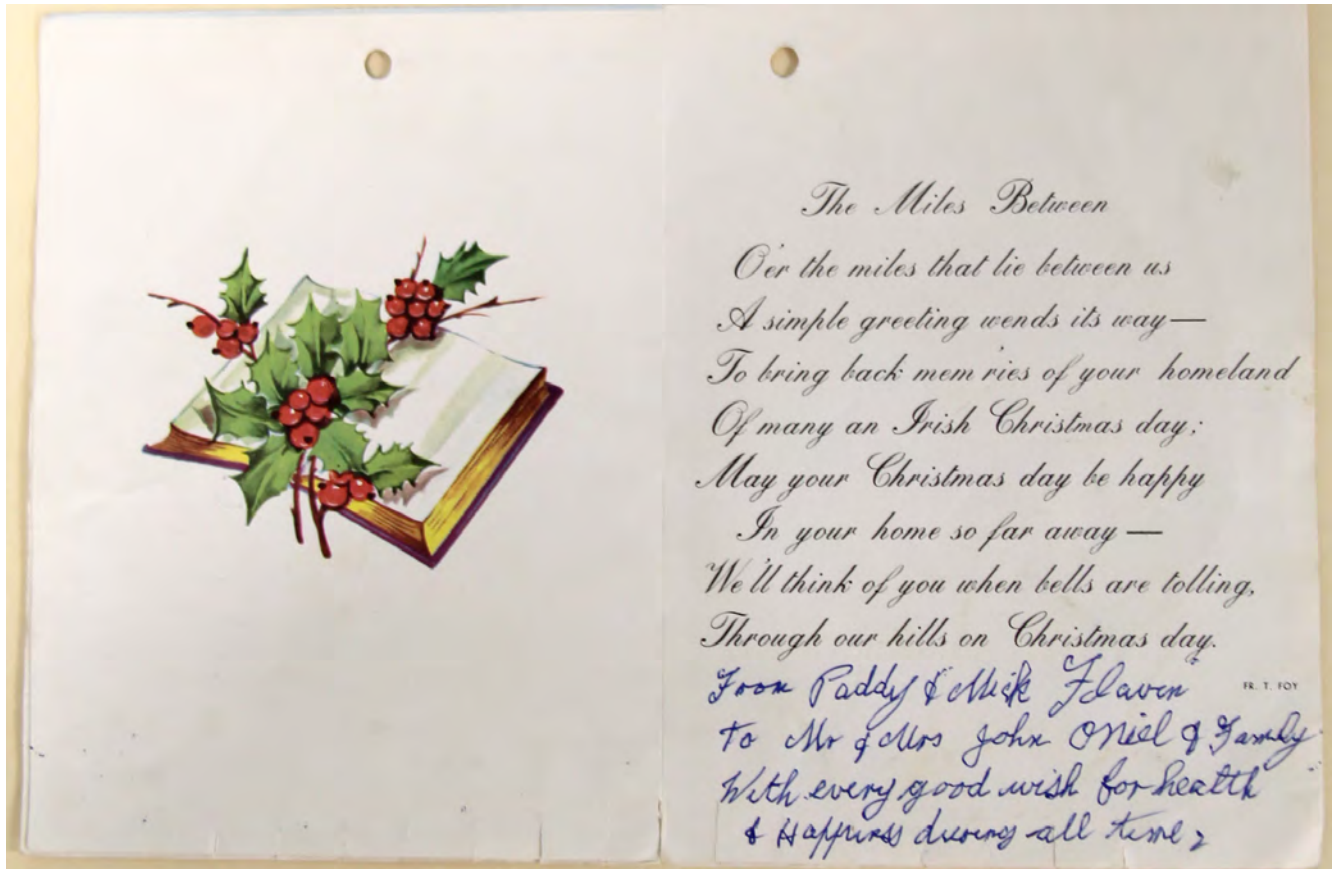 The Miles Between
O'er the miles that lie between us
A simple greeting wends its way—
To bring back mem'ries of your homeland
Of many an Irish Christmas day;
May your Christmas day be happy
In your home so far away —
We'll think of you when bells are tolling,
Through our hills on Christmas day.
FR. T. FOY
From Paddy & Mick Flaven
To Mr & Mrs John ONiel & Family
With every good wish for health
& Happiness during all time